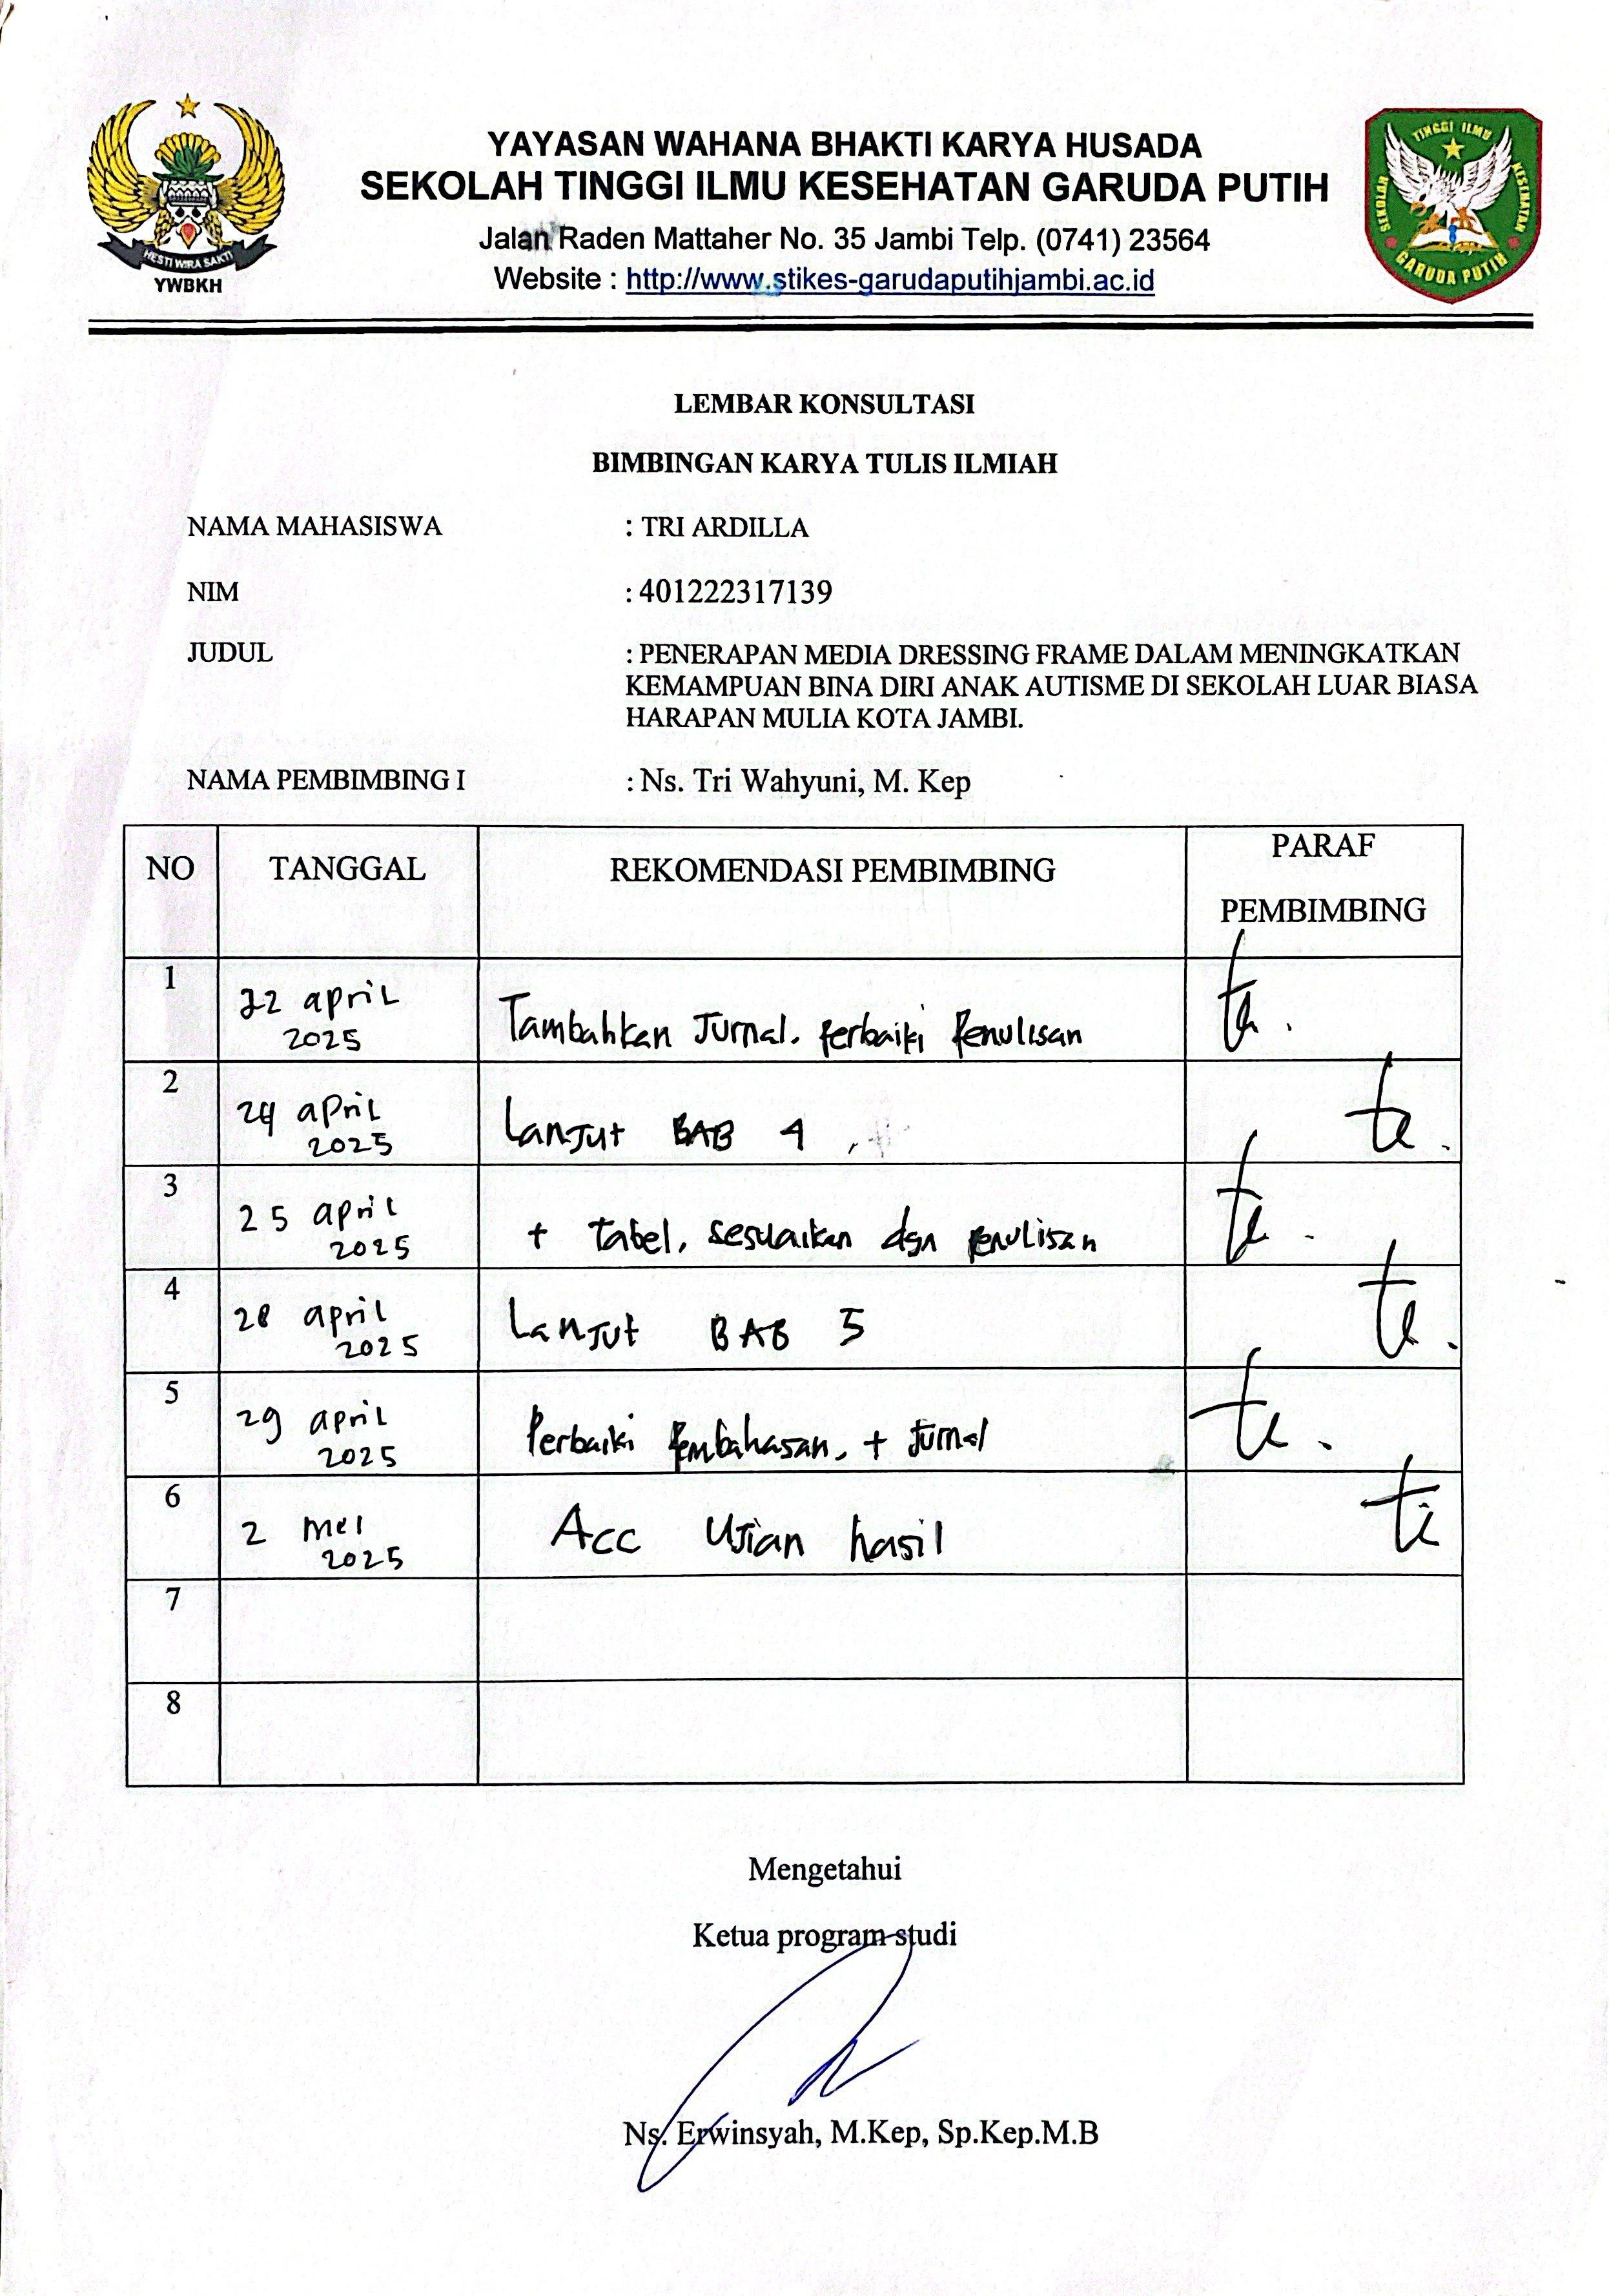 YAYASAN WAHANA BHAKTI KARYA HUSADA
SEKOLAH TINGGI ILMU KESEHATAN GARUDA PUTIH
Jalan Raden Mattaher No. 35 Jambi Telp. (0741) 23564
Website : http://www.stikes-garudaputihjambi.ac.id
HESTI WIRA SAKTI
YWBKH
SEKOLAH TINGGI ILMU KESEHATAN
GARUDA PUTIH
LEMBAR KONSULTASI
BIMBINGAN KARYA TULIS ILMIAH
NAMA MAHASISWA : TRI ARDILLA
NIM : 401222317139
JUDUL : PENERAPAN MEDIA DRESSING FRAME DALAM MENINGKATKAN
KEMAMPUAN BINA DIRI ANAK AUTISME DI SEKOLAH LUAR BIASA
HARAPAN MULIA KOTA JAMBI.
NAMA PEMBIMBING I : Ns. Tri Wahyuni, M. Kep
NO TANGGAL REKOMENDASI PEMBIMBING PARAF
PEMBIMBING
1 22 april
2025 Tambahkan Jurnal. perbaiki penulisan
2 24 april
2025 Lanjut BAB 4
3 25 april
2025 + tabel, sesuaikan dgn penulisan
4 28 april
2025 Lanjut BAB 5
5 29 april
2025 Perbaiki pembahasan, + Jurnal
6 2 mei
2025 Acc Ujian hasil
7
8
Mengetahui
Ketua program studi
Ns. Erwinsyah, M.Kep, Sp.Kep.M.B